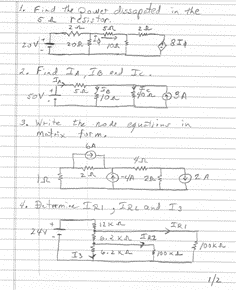 1. Find the power dissapated in the
5 Ω resistor.
2Ω 5Ω 2Ω
20V 20Ω 10Ω 8I
2. Find IA, IB and Ic.
IA 5Ω IB Ic
50V 10Ω 9A
3. Write the node equations in
matrix form.
6A
4Ω
1Ω 2Ω -4A 2Ω 2A
4. Determine IR1, IR2 and I3
12KΩ IR1
24V 6.2KΩ IR2
I3 6.2KΩ 100KΩ 100KΩ
1/2